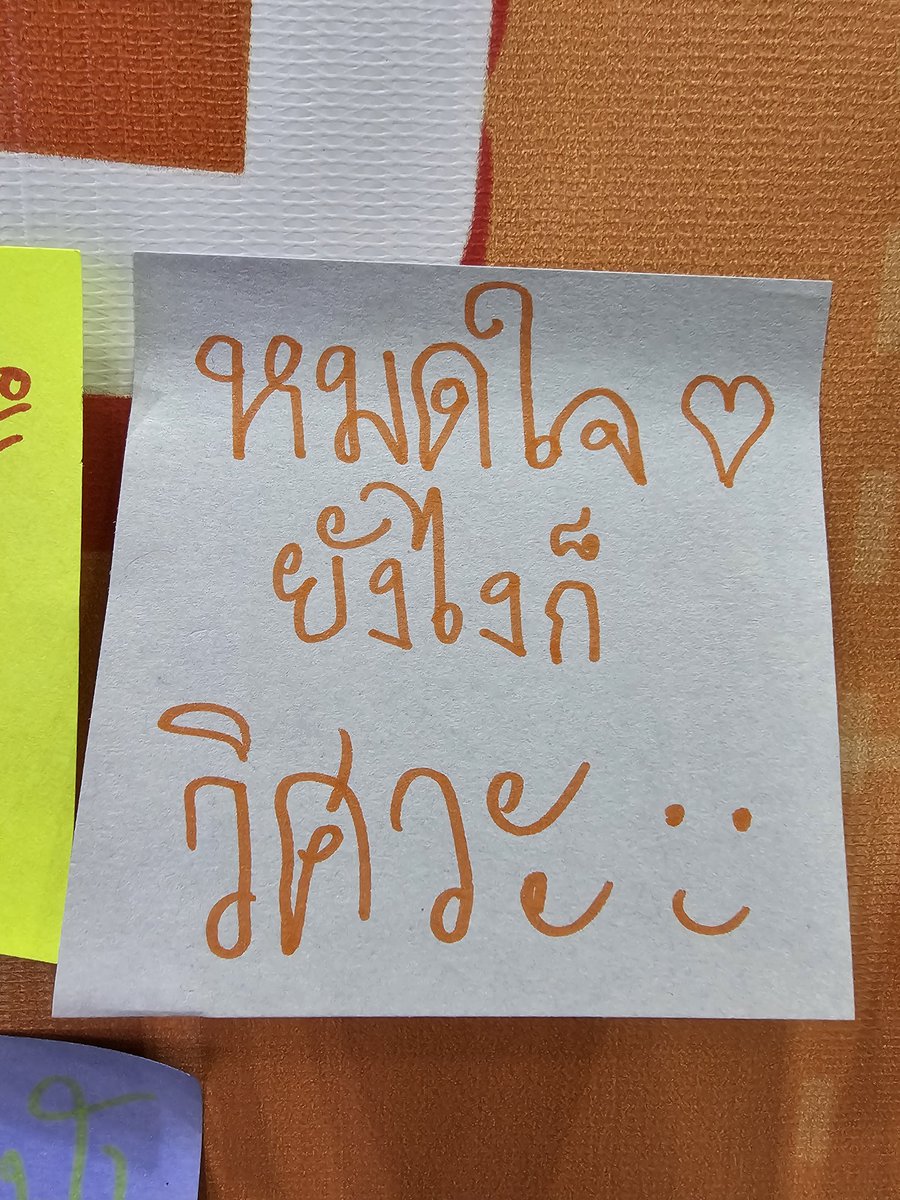 หมดใจ ♡
ยังไงก็
วิศวะ :)